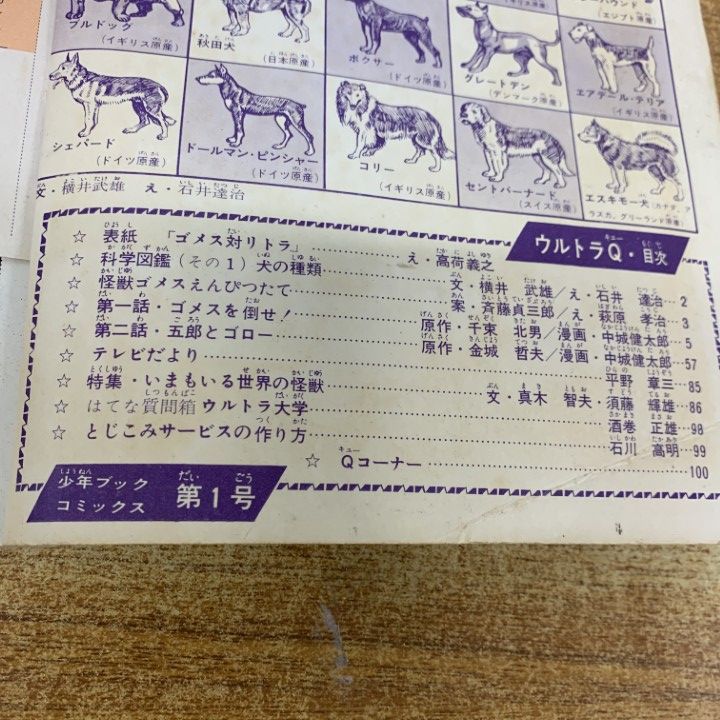 ブルドック
(イギリス原産)
秋田犬
(日本原産)
ボクサー
(ドイツ原産)
グレートデン
(デンマーク原産)
エアデール・テリア
(イギリス原産)
(エジプト原産)
シェパード
(ドイツ原産)
ドールマン・ピンシャー
(ドイツ原産)
コリー
(イギリス原産)
セントバーナード
(スイス原産)
エスキモー犬(カナダ、ア
ラスカ、グリーランド原産)
文・横井武雄 え・岩井達治
ウルトラQ・目次
☆ 表紙 「ゴメス対リトラ」 え・高荷義之
☆ 科学図鑑(その1)犬の種類 文・横井 武雄/え・石井 達治 2
☆ 怪獣ゴメスえんぴつたて 案・斉藤貞三郎/え・萩原 孝治 3
☆ 第一話・ゴメスを倒せ! 原作・千束 北男/漫画・中城健太郎 5
☆ 第二話・五郎とゴロー 原作・金城 哲夫/漫画・中城健太郎 57
☆ テレビだより 平野 章三 85
☆ 特集・いまもいる世界の怪獣 文・真木 智夫・須藤 輝雄 86
☆ はてな質問箱ウルトラ大学 酒巻 正雄 98
☆ とじこみサービスの作り方 石川 高明 99
☆ Qコーナー 100
少年ブック
コミックス
第1号